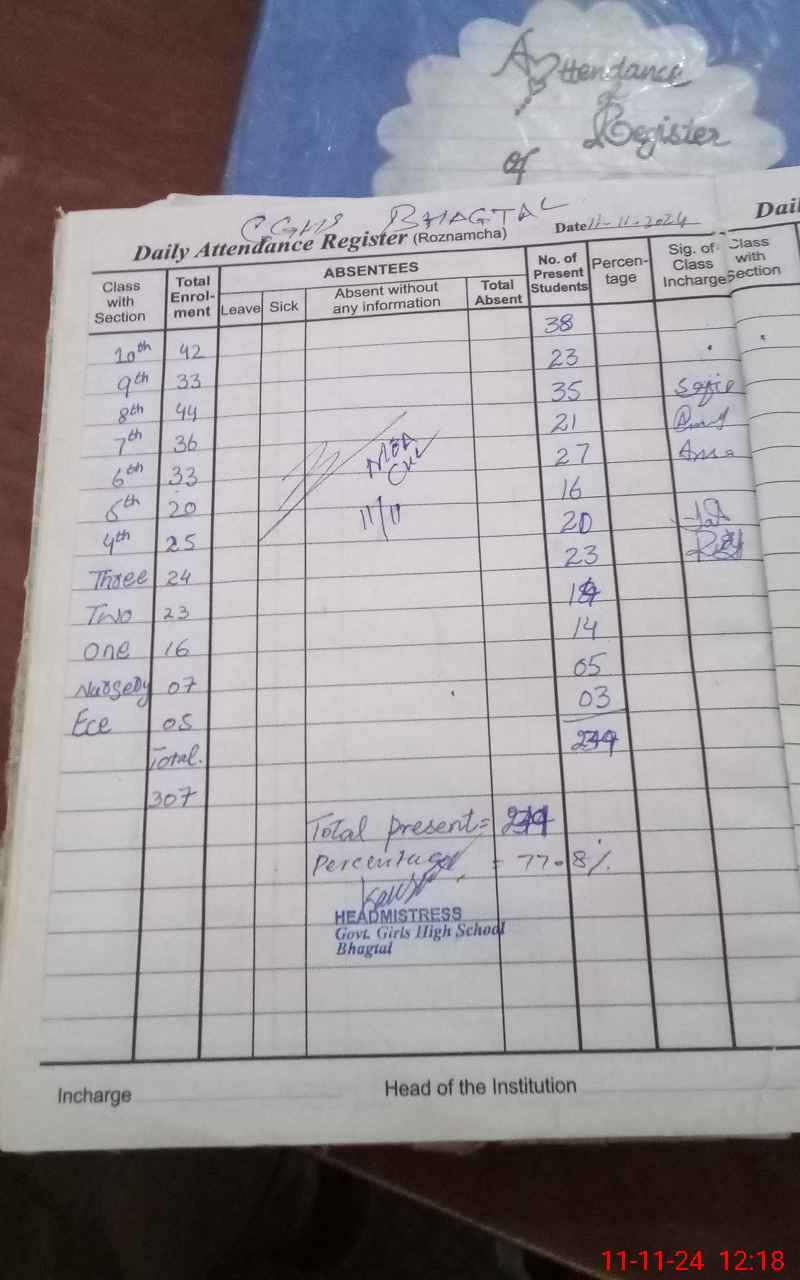 Attendance
of
Register
of
GGHS BHAGTAL
Daily Attendance Register (Roznamcha) Date 11-11-2024
Dail
Class with Section Total Enrol-ment ABSENTEES Leave Sick Absent without any information Total Absent No. of Present Students Percen-tage Sig. of Class Incharge
Class with Section
10th 42 38
9th 33 23
8th 44 35
7th 36 21
6th 33 27
5th 20 16
4th 25 20
Three 24 23
Two 23
One 16 14
Nursery 07 05
Ece 05 03
Total.
307
MEA
11/11
Total present =
Percentage = 77.8%
HEADMISTRESS
Govt. Girls High School
Bhagtal
Incharge Head of the Institution
11-11-24 12:18